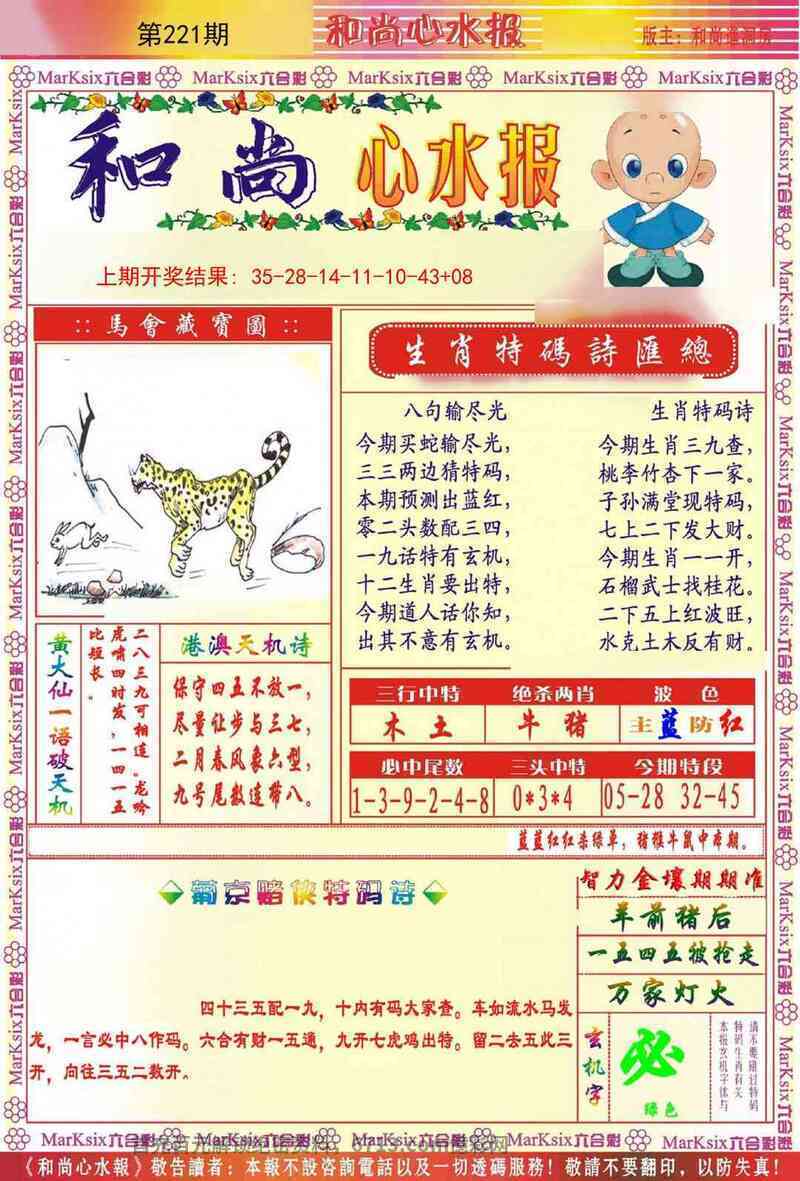 第221期
和尚心水报
版主：和尚进洞房
MarKsix六合彩 MarKsix六合彩 MarKsix六合彩 MarKsix六合彩 MarKsix六合彩
和尚心水报
上期开奖结果: 35-28-14-11-10-43+08
::馬會藏寶圖::
生肖特碼詩匯總
八句输尽光
今期买蛇输尽光，
三三两边猜特码，
本期预测出蓝红，
零二头数配三四，
一九话特有玄机，
十二生肖要出特，
今期道人话你知，
出其不意有玄机。
生肖特码诗
今期生肖三九查，
桃李竹杏下一家。
子孙满堂现特码，
七上二下发大财。
今期生肖一一开，
石榴武士找桂花。
二下五上红波旺，
水克土木反有财。
黄大仙一语破天机
二八三九可相连。龙吟
虎啸四时发，一四一五
比短长。
港澳天机诗
保守四五不放一，
尽量让步与三七，
二月春风象六型，
九号尾数连带八。
三行中特 绝杀两肖 波色
木土 牛猪 主蓝防红
必中尾数 三头中特 今期特段
1-3-9-2-4-8 0*3*4 05-28 32-45
蓝蓝红红杀绿单，猪猴牛鼠中本期。
葡京赌侠特码诗
四十三五配一九，十内有码大家查。车如流水马发
龙，一言必中八作码。六合有财一五通，九开七虎鸡出特。留二去五此三
开，向往三五二数开。
智力金壤期期准
羊前猪后
一五四五被抢走
万家灯火
玄机字
必
绿色
请不要错过特码
特码生肖有关
本报玄机字体与
MarKsix六合彩 MarKsix六合彩 MarKsix六合彩 MarKsix六合彩 MarKsix六合彩
《和尚心水報》敬告讀者：本報不設咨詢電話以及一切透碼服務！敬請不要翻印，以防失真！